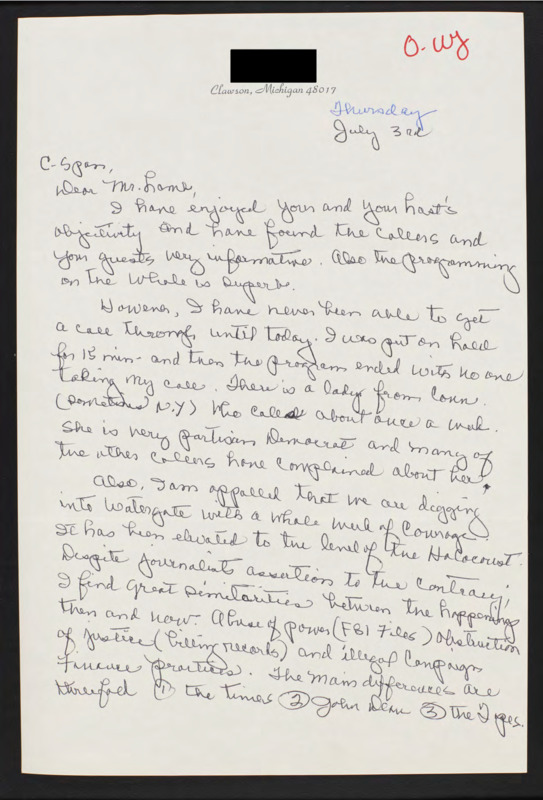 O-wy
Clawson, Michigan 48017
Thursday
July 3rd
C-Span,
Dear Mr. Lamb,
I have enjoyed your and your host's
objectivity and have found the callers and
your guests very informative. Also the programming
on the whole is superb.
However, I have never been able to get
a call through until today. I was put on hold
for 15 min - and then the program ended with no one
taking my call. There is a lady from Conn.
(sometimes N.Y) who calls about once a week.
She is very partisan Democrat and many of
the other callers have complained about her.
Also, I am appalled that we are digging
into Watergate with a whole week of coverage
It has been elevated to the level of the Holocoust.
Despite journalists assertion to the contrary,
I find great similarities between the happenings
then and now. Abuse of power (FBI Files) obstruction
of justice (billing records) and illegal Campaign
Finance practices. The main differences are
threefold ① the times ② John Dean ③ the Tapes.